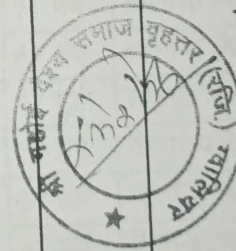 श्री माहौर वैश्य समाज वृहत्तर (रजि.) ग्वालियर